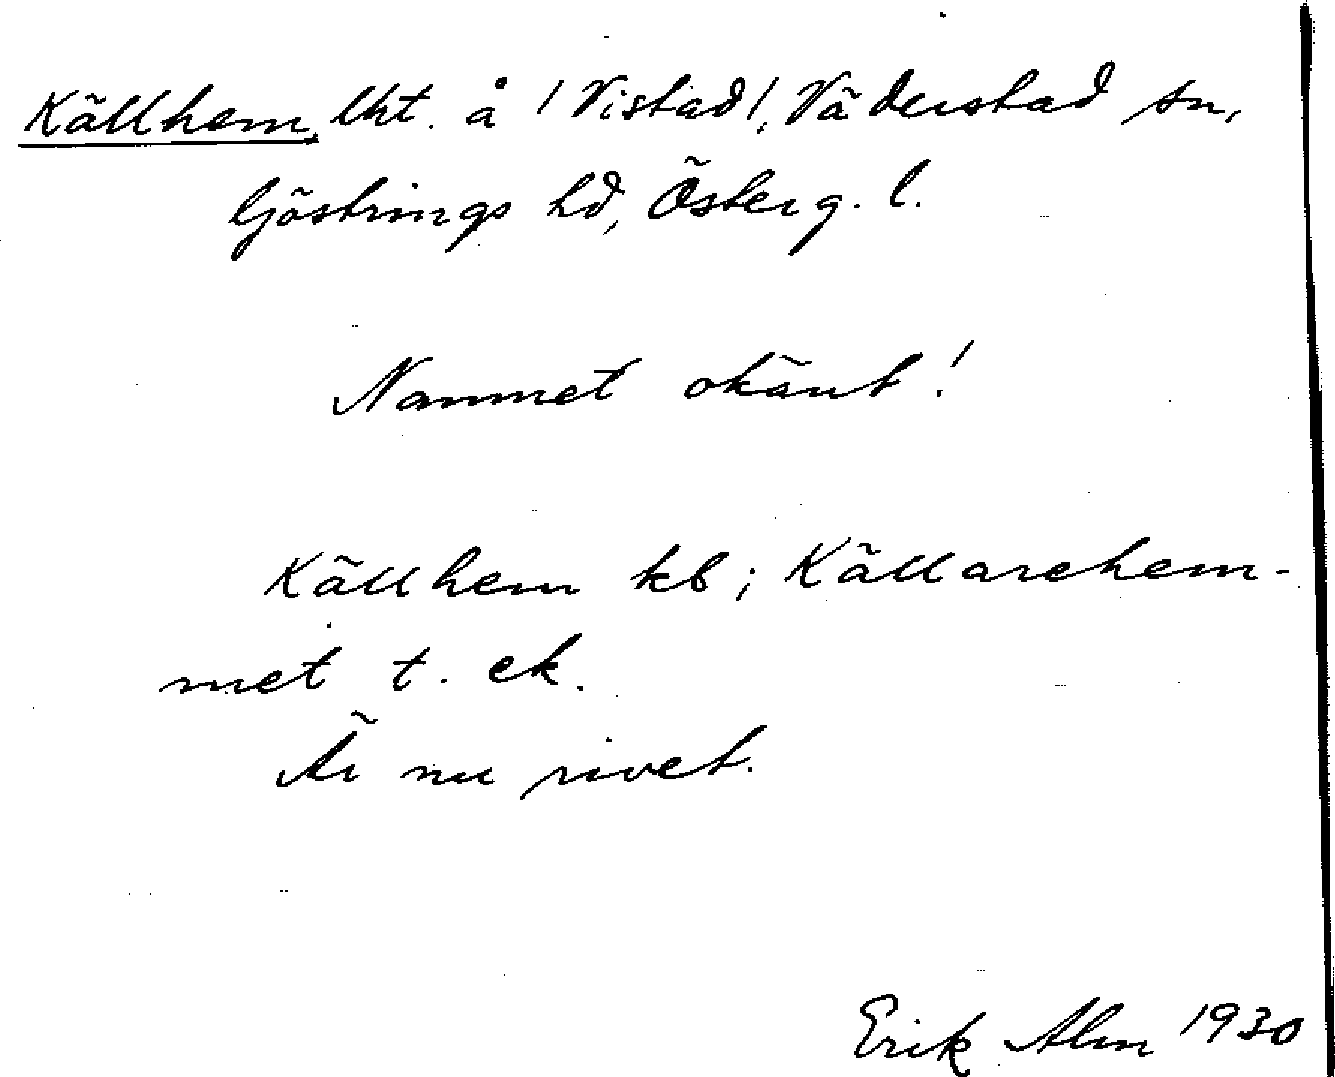 Källhem, lht. å /Vistad/, Väderstad sn,
Göstrings hd, Österg. l.
Namnet okänt!
Källhem kb; Källarehem-
met t. ek.
Är nu rivet.
Erik Alm 1930